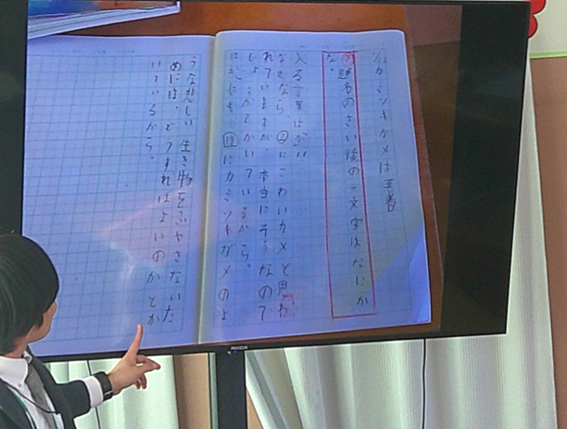 カミツキガメは悪者
題名のさい後の一文字はなにか
な。
入る言葉は
なぜなら、②にこわいカメと思わ
れていますが、本当にそうなので
しょうか。とかいているから。
ほかにも、⑲にカミツキガメのよ
うな悲しい生き物をふやさないた
めには、どうすればよいのかとか
いているから。